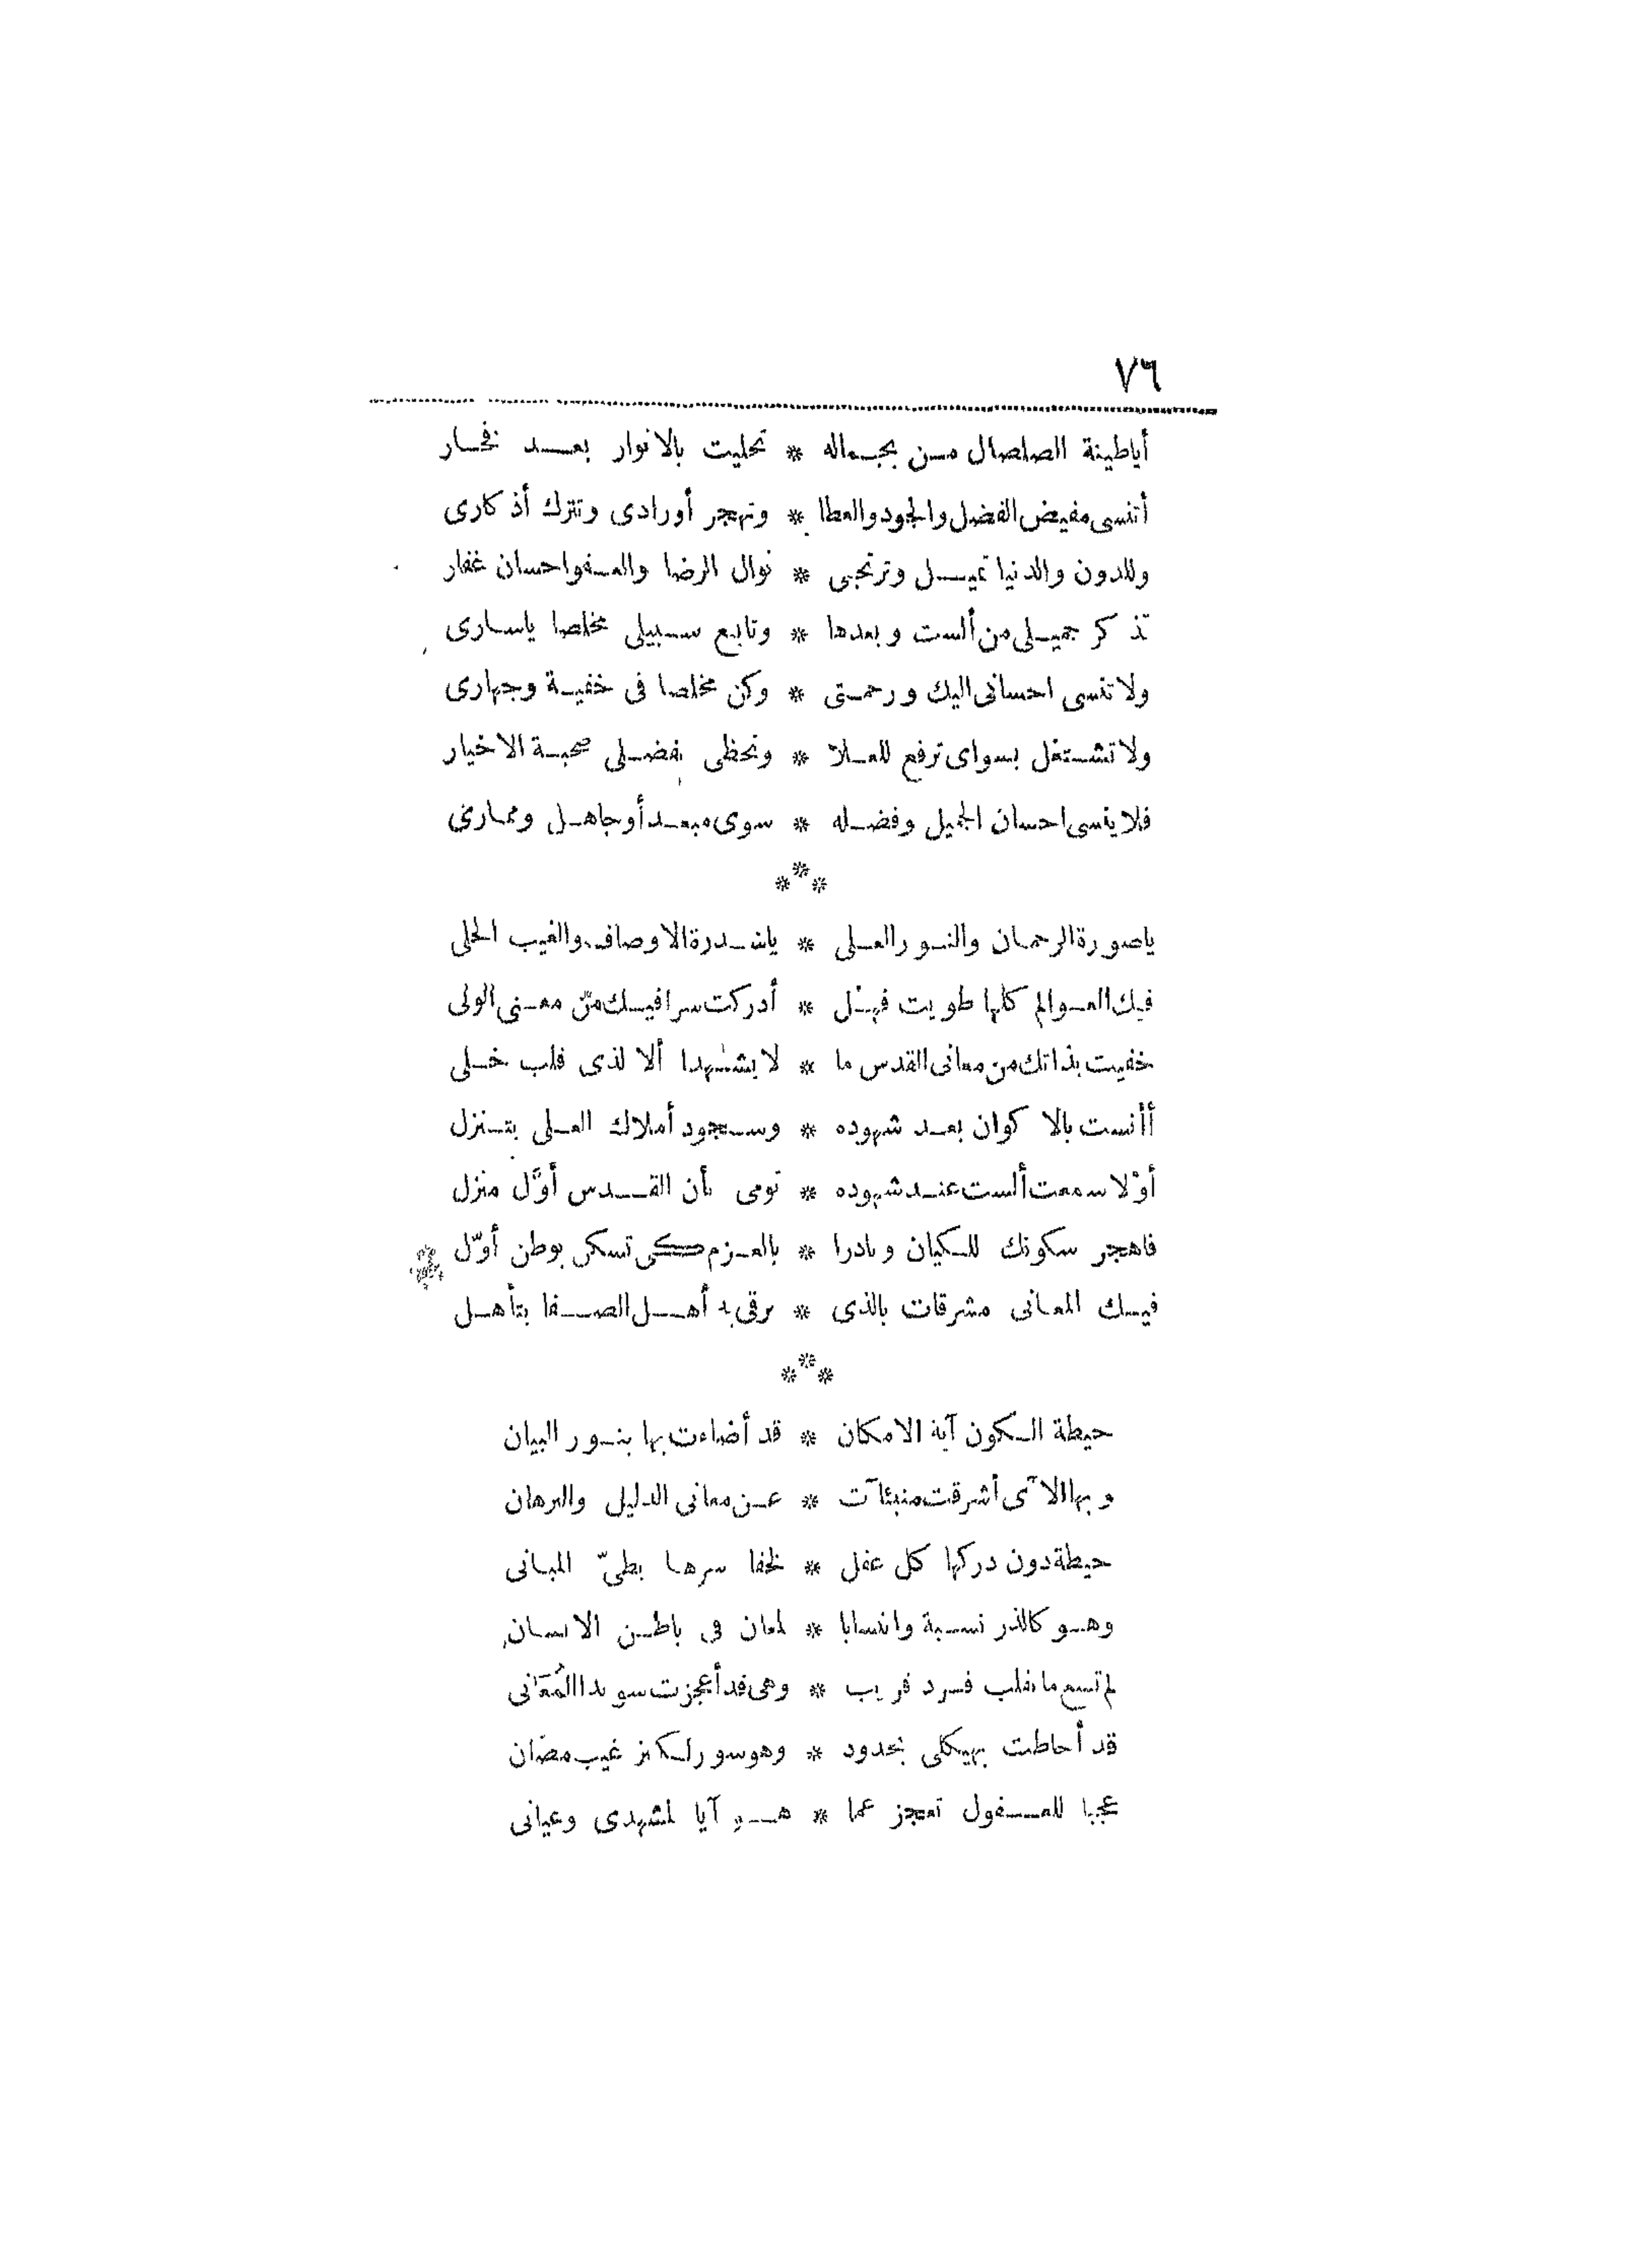 ٧٦
أياطينة الصلصال مـن بجـماله * تحليت بالانوار بعــد فخـار
أتنسى مفيض الفضل والجود والعطا * وتهجر أورادى وتترك أذكارى
وللدون والدنيا تميــل وترتجى * نوال الرضا والعـفو احسان غفار
تذكر جميـلى من ألست وبعدها * وتابع سـبيلى مخلصا ياسـارى
ولاتنسى احسانى اليك ورحمـتى * وكن مخلصا فى خفيـة وجهارى
ولاتشـتغل بسواى ترفع للعـلا * وتحظى بفضـلى صحبـة الاخيار
فلاينسى احسان الجميل وفضـله * سوى مبعـد أوجاهـل وممـارى
***
ياصورة الرحمـان والنـور العـلى * ياسـدرة الاوصاف والغيب الجلى
فيك العـوالم كلها طويت فهـل * أدركت سرا فيـك من معـنى الولى
خفيت بذاتك من معانى القدس ما * لايشـهدا ألا لذى قلب خـلى
أأنست بالاكوان بعـد شهوده * وسـجود أملاك العـلى بتـنزل
أوْلا سمعت ألست عنـد شهوده * تومى بأن القــدس أوَّل منزل
فاهجر سكونك للـكيان وبادرا * بالعـزم كى تسكن بوطن أوّل
فيـك المعـانى مشرقات بالذى * يرقى به أهــل الصــفا بتأهـل
***
حيطة الـكون آية الامكان * قد أضاءت بها بنـور البيان
وبها الآى أشرقت منبئآت * عـن معانى الدليل والبرهان
حيطة دون دركها كل عقل * لخفا سرهـا بطىّ المبـانى
وهـو كالذر نسـبة وانتسابا * لمعان فى باطـن الانسـان
لم تسع ما بقلب فـرد قريب * وهى قد أعجزت سويدا المُعَانى
قد أحاطت بهيكلى بحدود * وهو سور لـكنز غيب مصَان
عجبا للعــقول تعجز عما * هــو آيا لمشهدى وعيانى